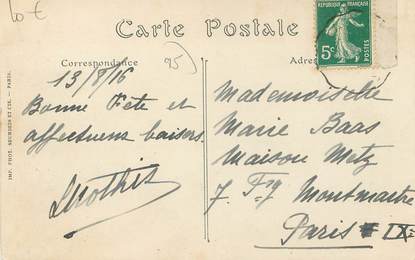 10 €
Carte Postale
RÉPUBLIQUE FRANÇAISE
5c
POSTES
Correspondance
95
13/8/16
Bonne Fête et
affectueux baisers
Mademoiselle
Marie Baas
Maison Metz
7 Fg Montmartre
Paris IXe
IMP. PHOT. NEURDEIN ET CIE. - PARIS.